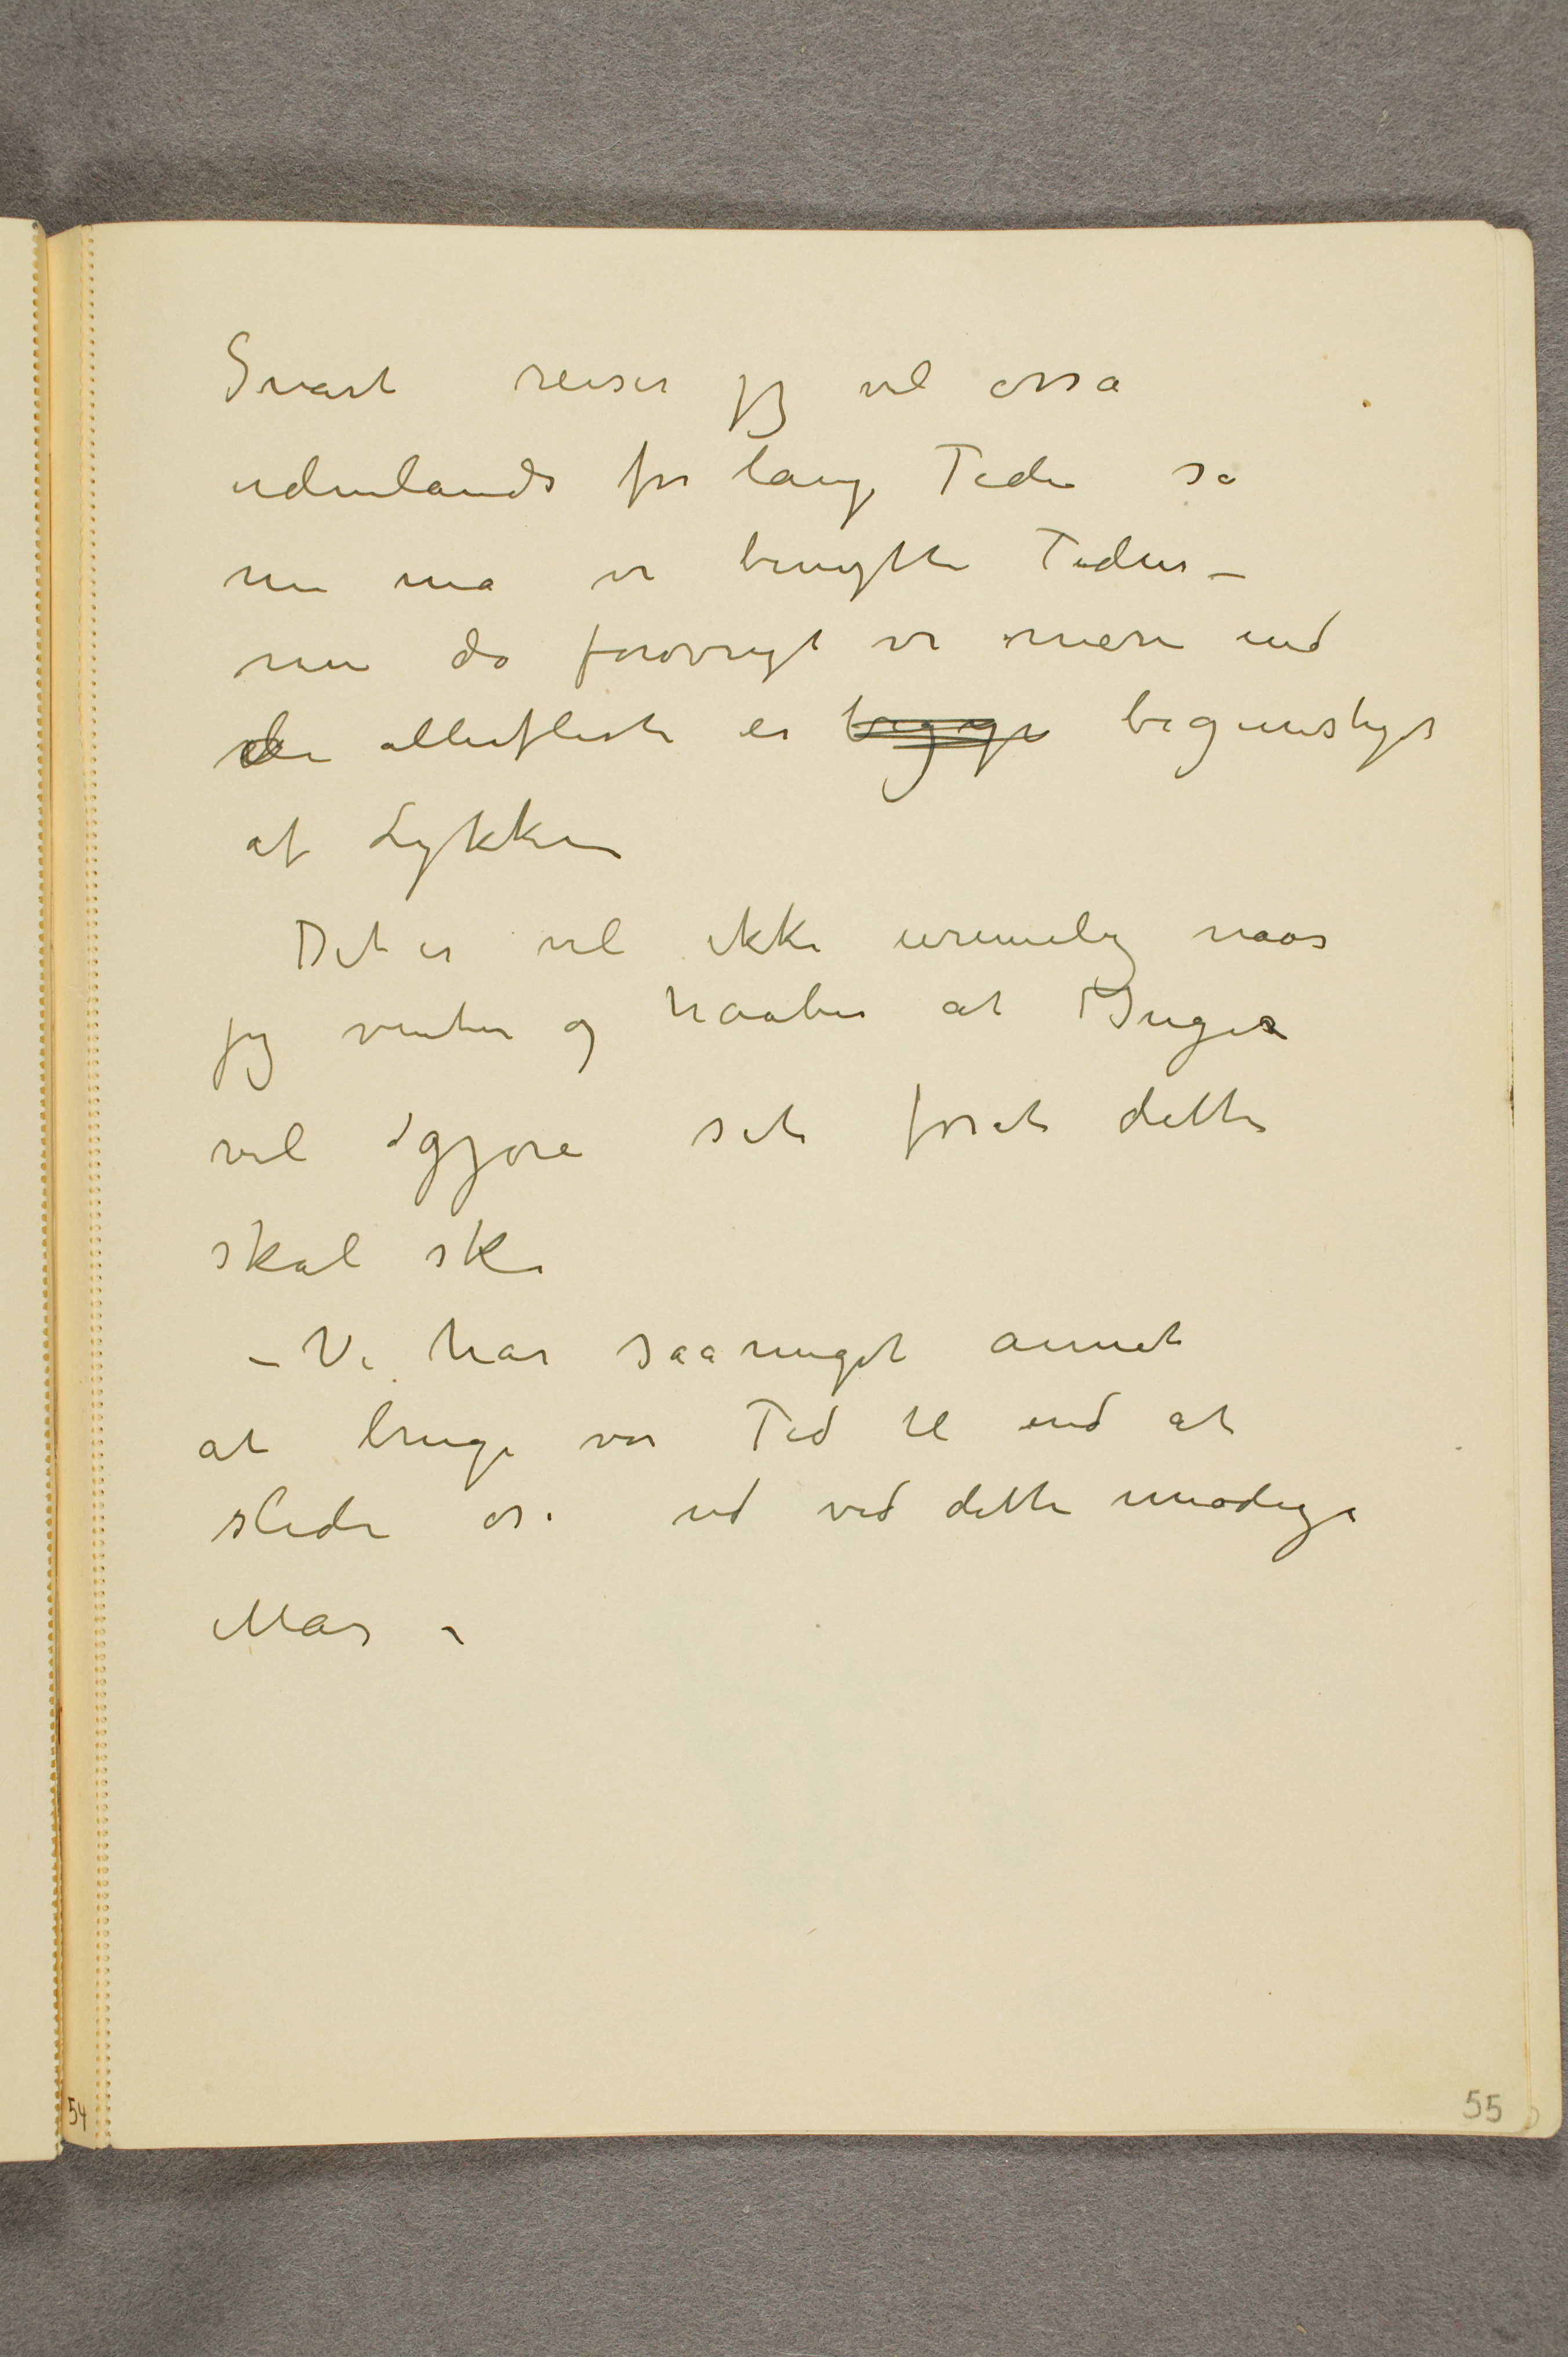 Snart reiser jeg vel ossa
udenlands for lang Tid så
nu må vi benytte Tiden –
nu da forøvrigt vi mere end
de allerfleste er begge begunstiget
af Lykken
Det er vel ikke urimelig naar
jeg venter og haaber at Inger
vil gjøre sit forat dette
skal ske
– Vi har saa meget annet
at bruge vor Tid til end at
slide os ud ved dette unødige
Mas –
54
55